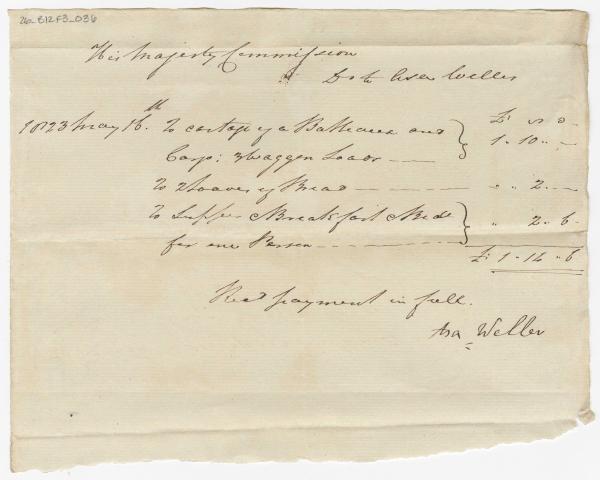 26_B12F3_036
His Majesty Commission
Dr to Asa Weller
£ s D
1823 May 16.th To cartage of a Batteaux and
Cargo: 3 waggon Loads 1 " 10 "
To 2 Loaves of Bread " " 2 "
To Supper Breakfast & Bed " 2 " 6
for one Person
£ 1 " 14 " 6
Recd payment in full.
Asa Weller